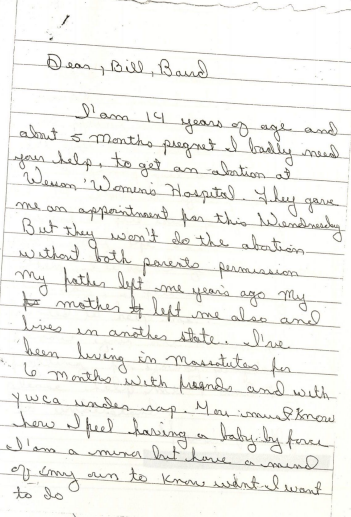 1
Dear, Bill, Baird
I'am 14 years of age and
about 5 months pregnet I badly need
your help, to get an abotion at
Wesson Women's Hospital. They gave
me an appointment for this Wendnesday
But they won't do the abortion
without both parents permission
My father left me years ago My
mother left me also and
lives in another state. I've
been living in Massatutes for
6 months with friends and with
ywca under sap. You must know
how I feel having a baby by force
I'am a minor but have a mind
of my own to know want I want
to do